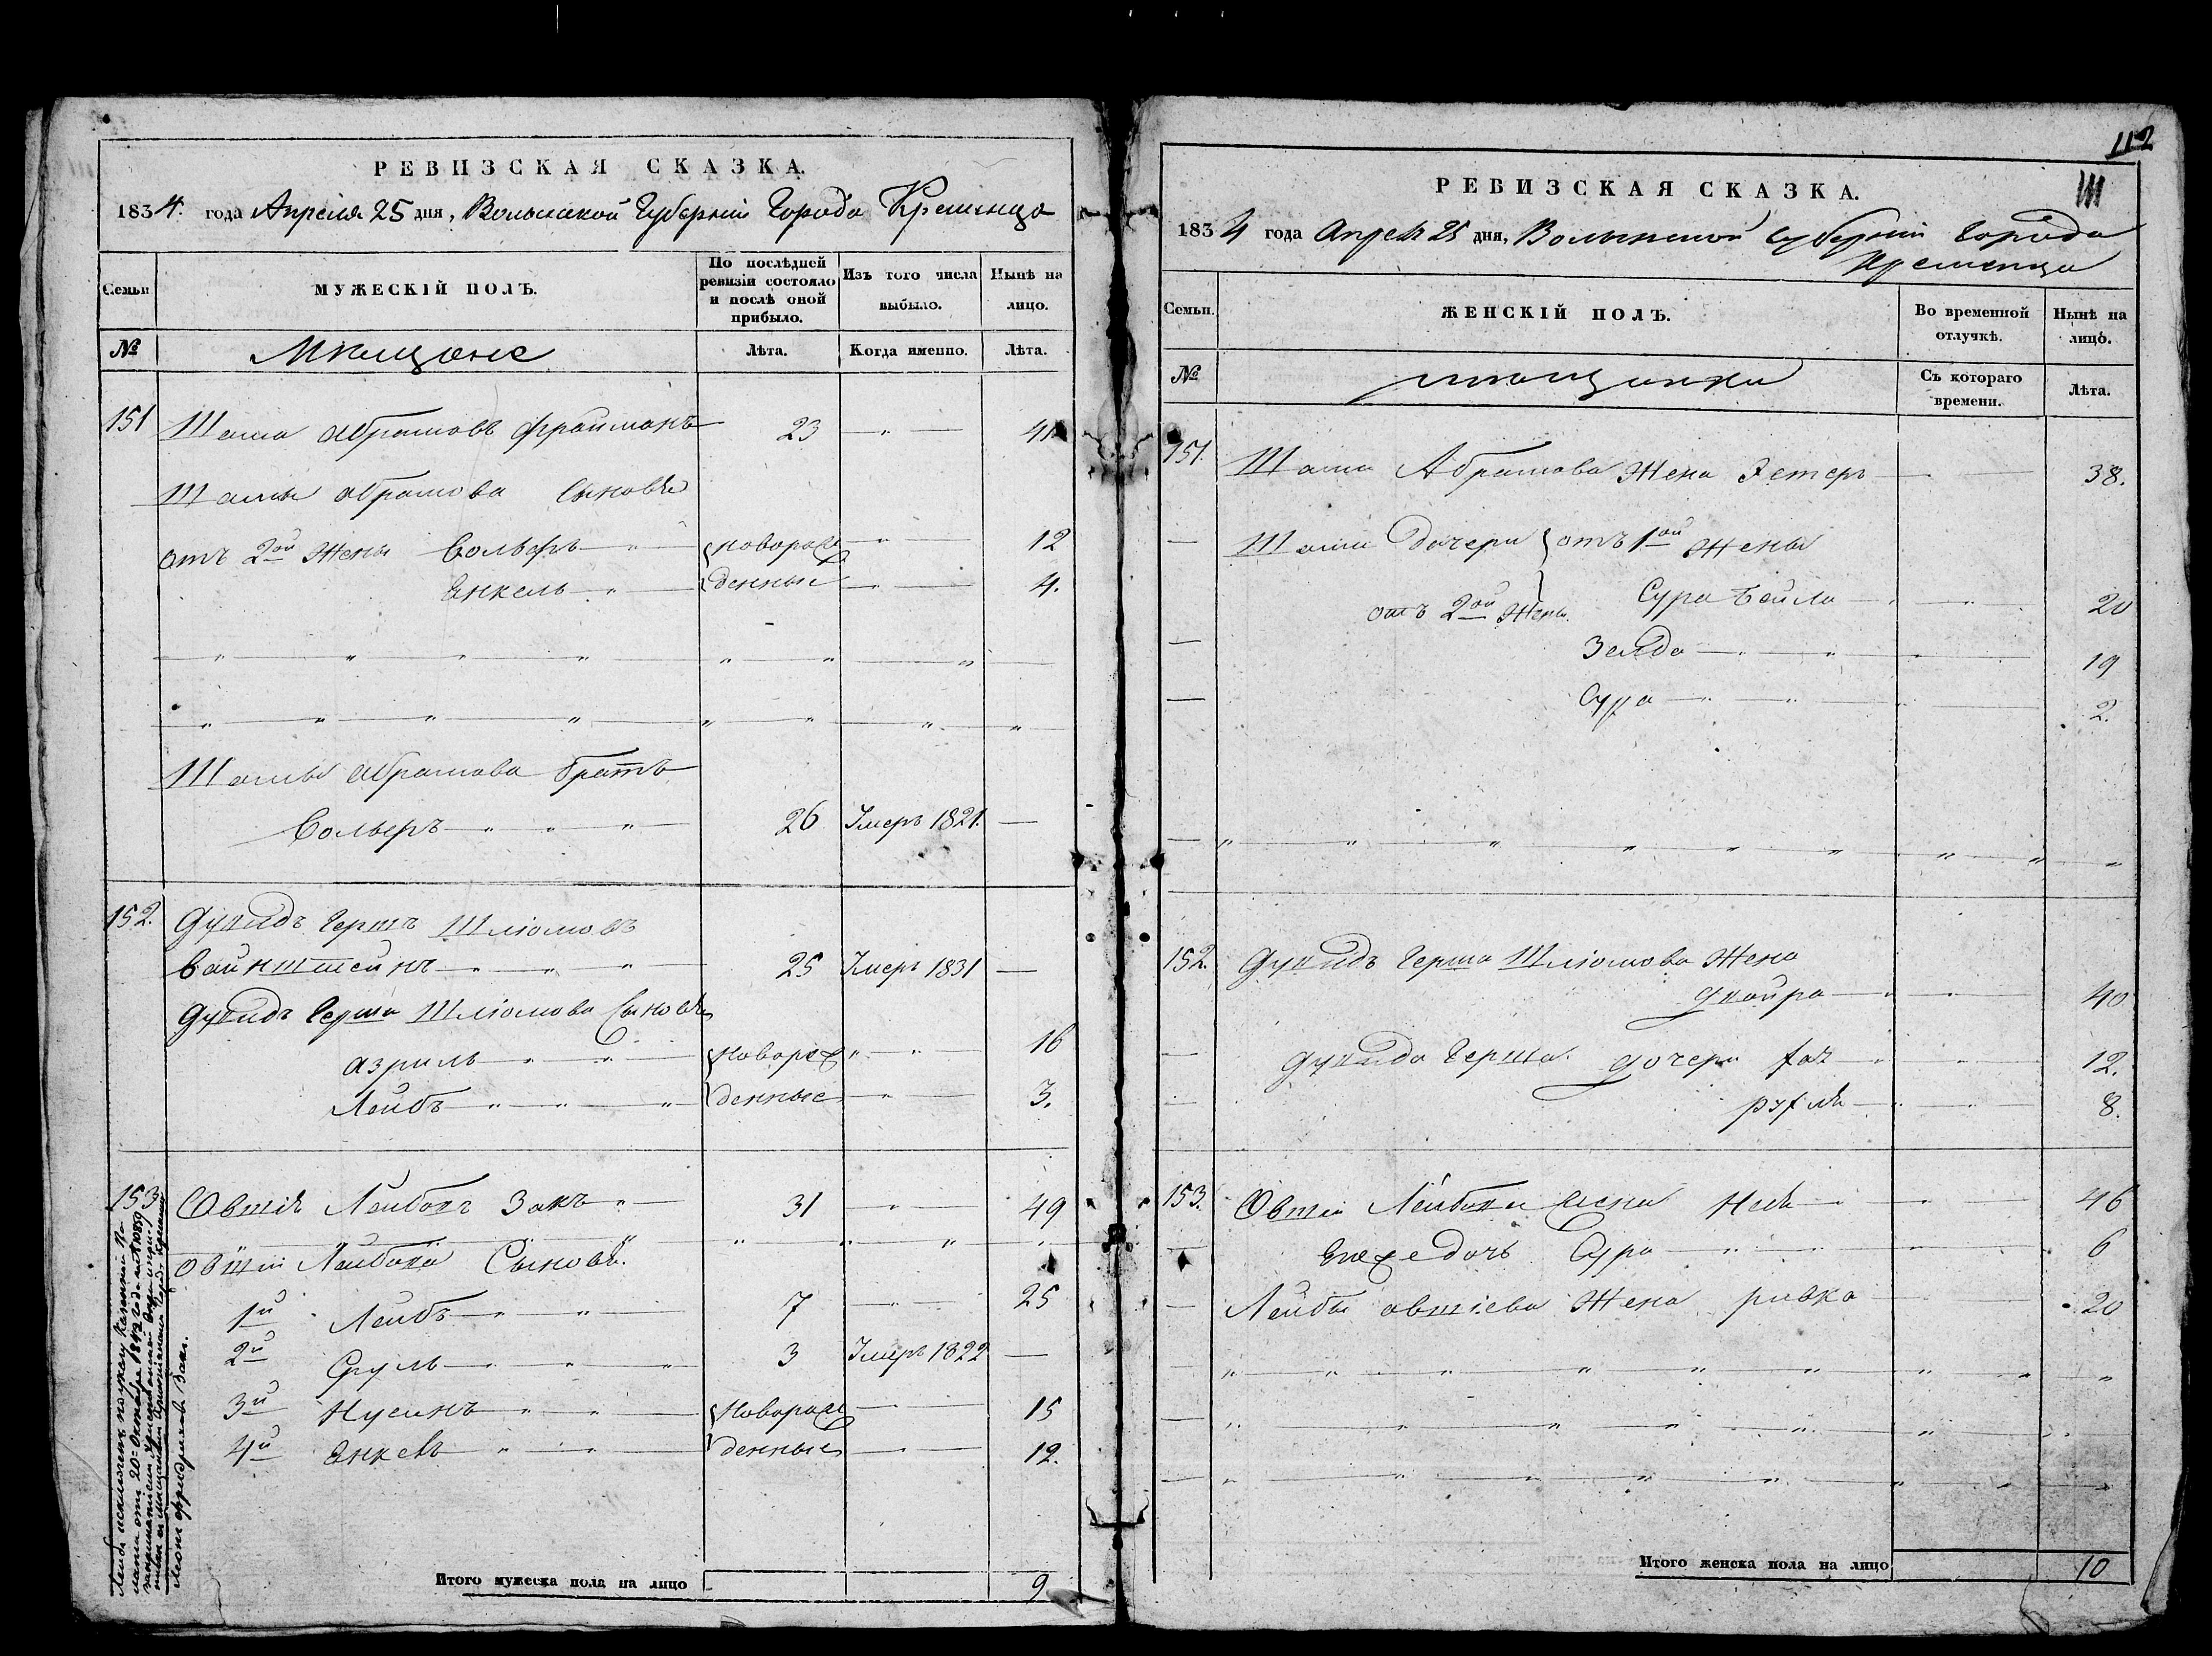 РЕВИЗСКАЯ СКАЗКА.
1834. года Апреля 25 дня, Волынской Губерніи Города Кременца
Семьи
МУЖЕСКІЙ ПОЛЪ.
По послѣдней ревизіи состояло и послѣ оной прибыло.
Изъ того числа выбыло.
Нынѣ на лицо.
№
Мѣщане
Лѣта.
Когда именно.
Лѣта.
151 Шама Абрамовъ Фрайманъ 23 — 41
Шамы Абрамова Сыновѣ
отъ 2ой Жены Вольфъ новорож 12
Янкель денные 4.
Шамы Абрамова братъ
26 Умеръ 1821. —
152. Дувидъ Гершъ Шліомовъ
Вайнштейнъ 25 Умеръ 1831 —
Дувидъ Герша Шліомова Сыновѣ
Азриль новорож 16
Лейбъ денные 3.
153 Овшія Лейбовъ Закъ 31 — 49
Овшіи Лейбова Сыновѣ.
1й Лейбъ 7 — 25
2й Сруль 3 Умеръ 1822 —
3й Нусинъ Новорож 15
4й денные 12.
Лейба исключенъ по указу Казенной Па
латы отъ 20 Октября 1842 года
Итого мужеска пола на лицо 9
112
111
РЕВИЗСКАЯ СКАЗКА.
1834 года Апреля 25 дня, Волынской Губерніи Города
Кременца
Семьи.
ЖЕНСКІЙ ПОЛЪ.
Во временной отлучкѣ.
Нынѣ на лицо.
№
мѣщанки
Съ котораго времени.
Лѣта.
151. Шамы Абрамова Жена Эстеръ 38.
Шамы Дочери отъ 1ой Жены
Сура Бейла 20
отъ 2ой Жены.
Зелда 19
Сура 2.
152. Дувидъ Герша Шліомова Жена
Двойра 40
Дувида Герша дочери Хая 12.
Рухля 8.
153. Овшіи Лейбова Жена 46
Егоже дочь Сура 6
Лейбы Овшіева Жена Ривка 20
Итого женска пола на лицо 10